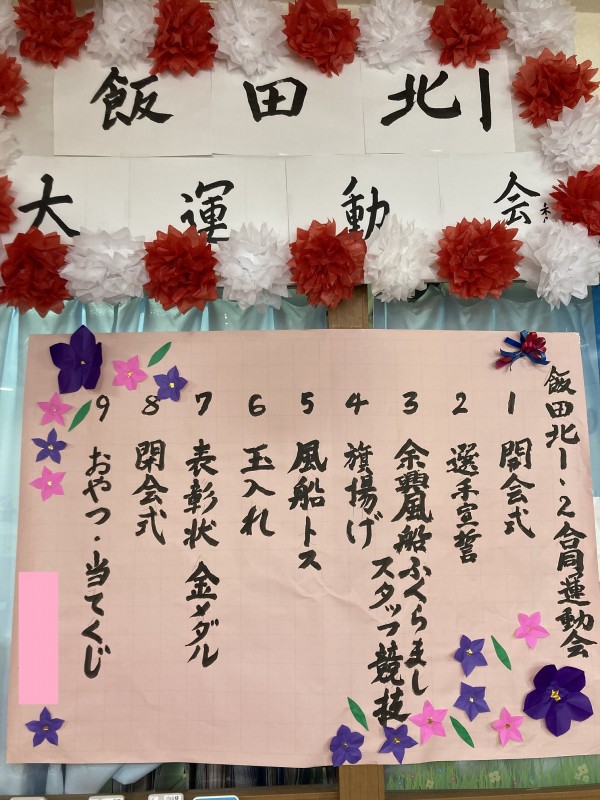 飯田北1
大運動会
飯田北1・2合同運動会
1 開会式
2 選手宣誓
3 余興風船ふくらまし
スタッフ競技
4 旗揚げ
5 風船トス
6 玉入れ
7 表彰状 金メダル
8 閉会式
9 おやつ・当てくじ